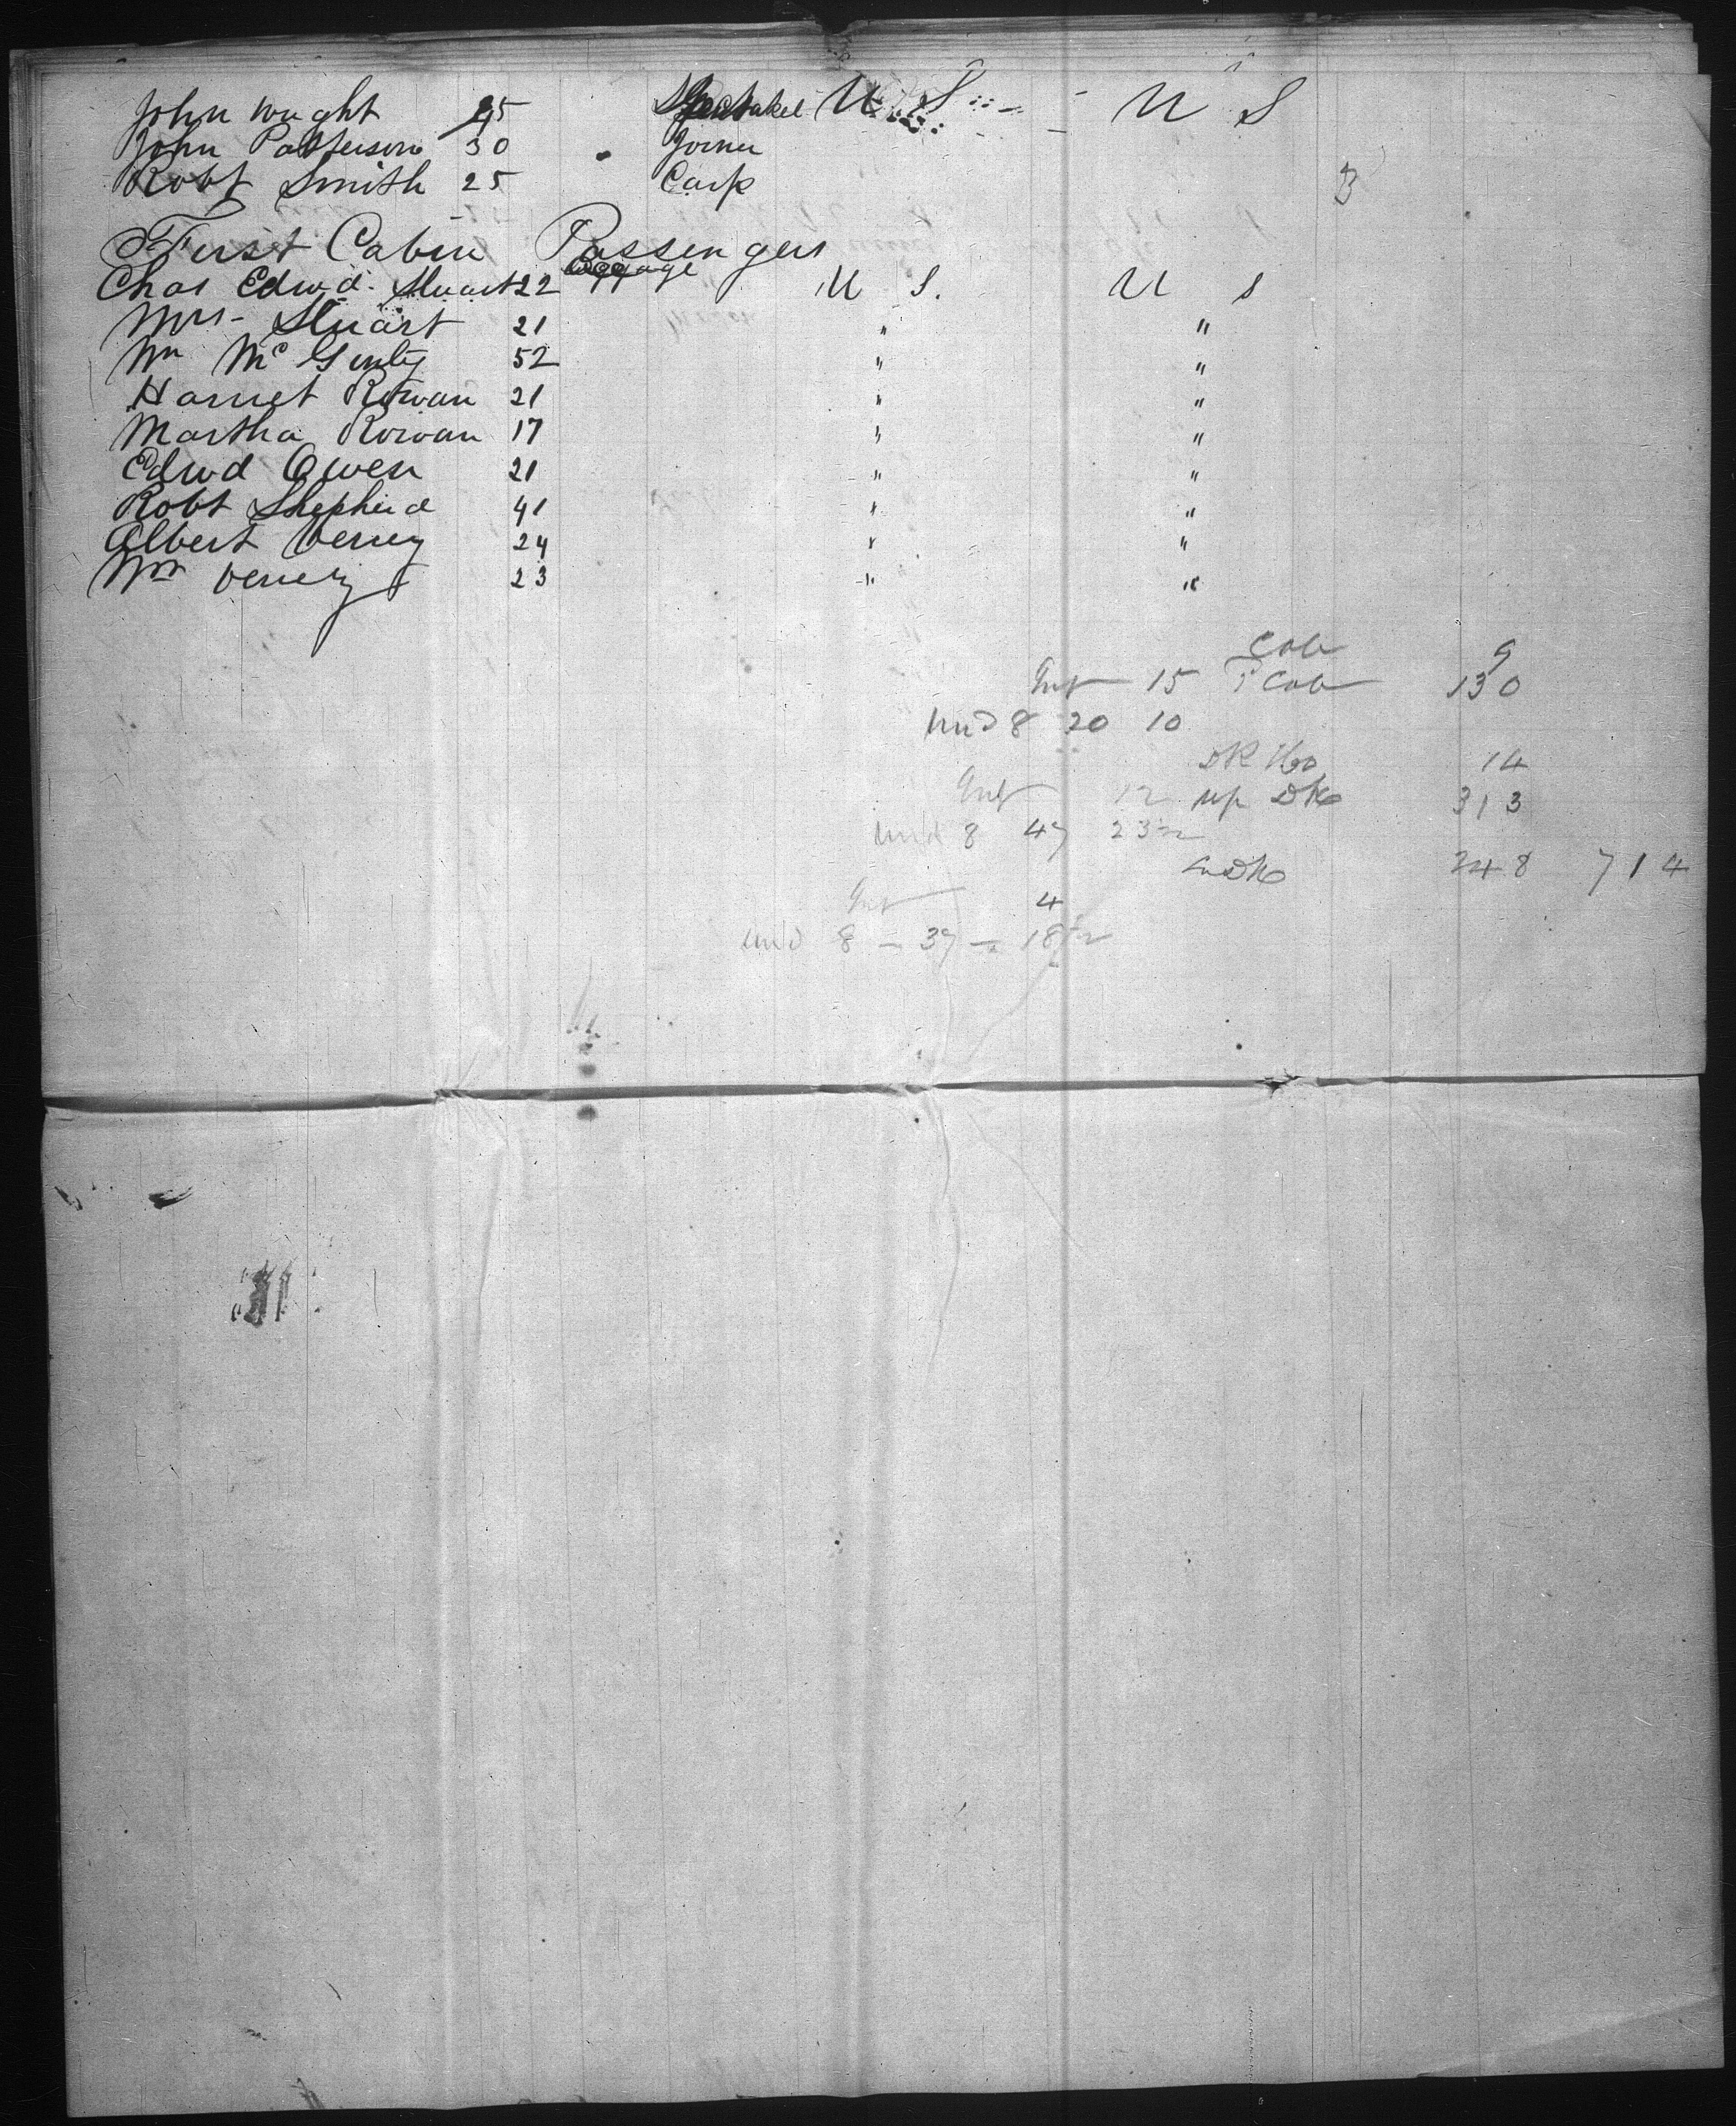 John Wright 25 U S U S
John Patterson 30 Joiner
Robt Smith 25 Carp
First Cabin Passengers
Luggage
Chas Edwd. Stuart 22 U S. U S
Mrs- Stuart 21 " "
Wm McGinty 52 " "
Harriet Rowan 21 " "
Martha Rowan 17 " "
Edwd Owen 21 " "
Robt Shepherd 41 " "
Albert Verrey 24 " "
Wm Verrey 23 " "
Cab 9
Inf 15 Cab 130
und 8 20 10
DK Ho 14
Inf 12 up DK 313
und 8 47 23½
DK 248 714
Inf 4
und 8 - 37 - 18½